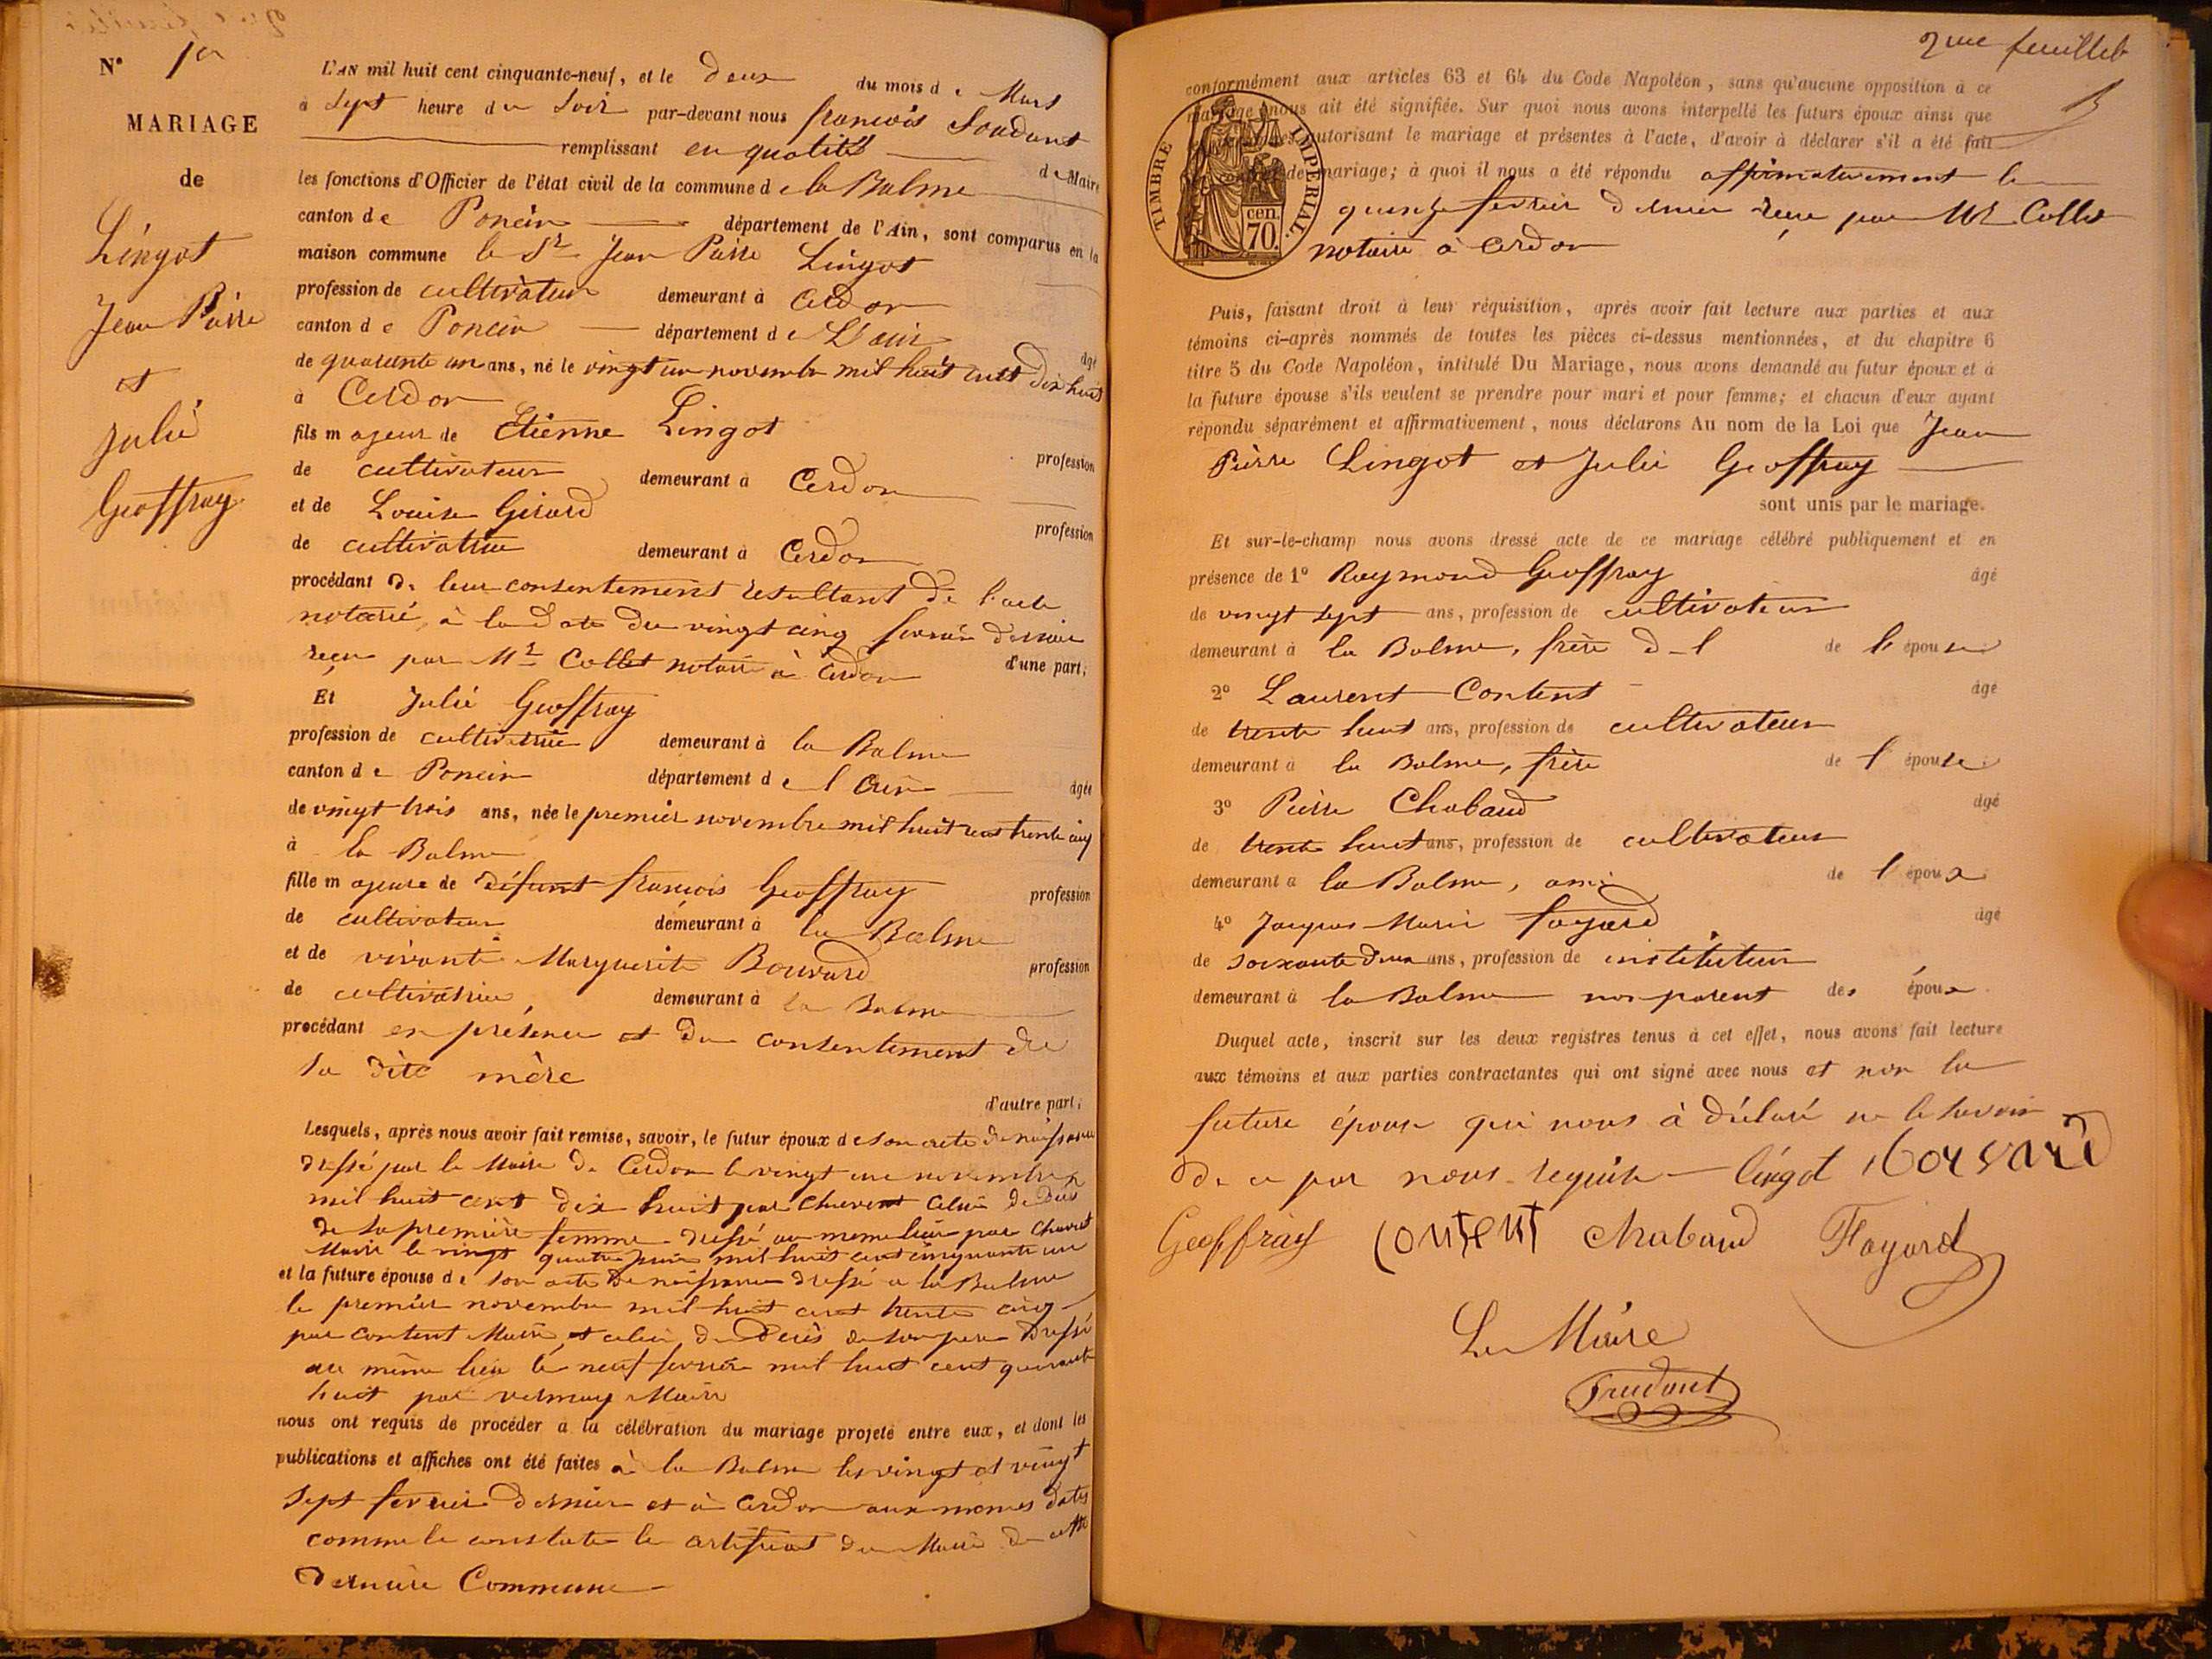 N° 1er
MARIAGE
de
Lingot
Jean Pierre
et
Julie
Geoffray
L'AN mil huit cent cinquante-neuf, et le deux du mois de Mars
à sept heure du soir par-devant nous françois
remplissant en qualité de Maire
les fonctions d'Officier de l'état civil de la commune de la Balme
canton de Poncin département de l'Ain, sont comparus en la
maison commune le Sr Jean Pierre Lingot
profession de cultivateur demeurant à Cerdon
canton de Poncin département de L'ain âgé
de quarante un ans, né le vingt un novembre mil huit cent dix huit
à Cerdon
fils majeur de Etienne Lingot profession
de cultivateur demeurant à Cerdon
et de Louise Girard profession
de cultivatrice demeurant à Cerdon
procédant de leur consentement resultant de l'acte
notarié, à la date du vingt cinq fevrier dernier
reçu par Mr Collet notaire à Cerdon d'une part;
Et Julie Geoffray
profession de cultivatrice demeurant à la Balme
canton de Poncin département de l'Ain âgée
de vingt trois ans, née le premier novembre mil huit cent trente cinq
à la Balme
fille majeure de défunt françois Geoffray profession
de cultivateur demeurant à la Balme
et de vivante Marguerite Bouvard profession
de cultivatrice, demeurant à la Balme
procédant en présence et du consentement de
sa dite mère
d'autre part;
Lesquels, après nous avoir fait remise, savoir, le futur époux de son acte de naissance
dressé par le Maire de Cerdon le vingt un novembre
mil huit cent dix huit par Chavent celui de décès
de sa première femme dressé au meme lieu par Chavent
Maire le vingt quatre juin mil huit cent cinquante un
et la future épouse de son acte de naissance dressé a la Balme
le premier novembre mil huit cent trente cinq
par Content Maire, et celui du décès de son père dressé
au même lieu le neuf fevrier mil huit cent quarante
huit par Maire
nous ont requis de procéder à la célébration du mariage projeté entre eux, et dont les
publications et affiches ont été faites à la Balme les vingt et vingt
sept fevrier dernier et à Cerdon aux memes dates
comme le constate le certificat du Maire de cette
derniere Commune
2me feuillet
conformément aux articles 63 et 64 du Code Napoléon, sans qu'aucune opposition à ce
mariage nous ait été signifiée. Sur quoi nous avons interpellé les futurs époux ainsi que
autorisant le mariage et présentes à l'acte, d'avoir à déclarer s'il a été fait
de mariage; à quoi il nous a été répondu affirmativement le
quinze fevrier dernier reçu par Mr Collet
notaire à Cerdon
TIMBRE IMPÉRIAL.
cen.
70.
Puis, faisant droit à leur réquisition, après avoir fait lecture aux parties et aux
témoins ci-après nommés de toutes les pièces ci-dessus mentionnées, et du chapitre 6
titre 5 du Code Napoléon, intitulé Du Mariage, nous avons demandé au futur époux et à
la future épouse s'ils veulent se prendre pour mari et pour femme; et chacun d'eux ayant
répondu séparément et affirmativement, nous déclarons Au nom de la Loi que Jean
Pierre Lingot et Julie Geoffray
sont unis par le mariage.
Et sur-le-champ nous avons dressé acte de ce mariage célébré publiquement et en
présence de 1° Raymond Geoffray âgé
de vingt sept ans, profession de cultivateur
demeurant à la Balme, frère d-l de l'épouse
2° Laurent Content âgé
de trente huit ans, profession de cultivateur
demeurant à la Balme, frère de l'épouse
3° Pierre Chabaud âgé
de trente huit ans, profession de cultivateur
demeurant a la Balme, ami de l'époux
4° Jacques Marie fayard âgé
de soixante deux ans, profession de instituteur
demeurant à la Balme non parent des époux.
Duquel acte, inscrit sur les deux registres tenus à cet effet, nous avons fait lecture
aux témoins et aux parties contractantes qui ont signé avec nous et non la
future épouse qui nous à déclaré ne le savoir
de ce par nous requise lingot
Geoffray Content Chabaud Fayard
Le Maire